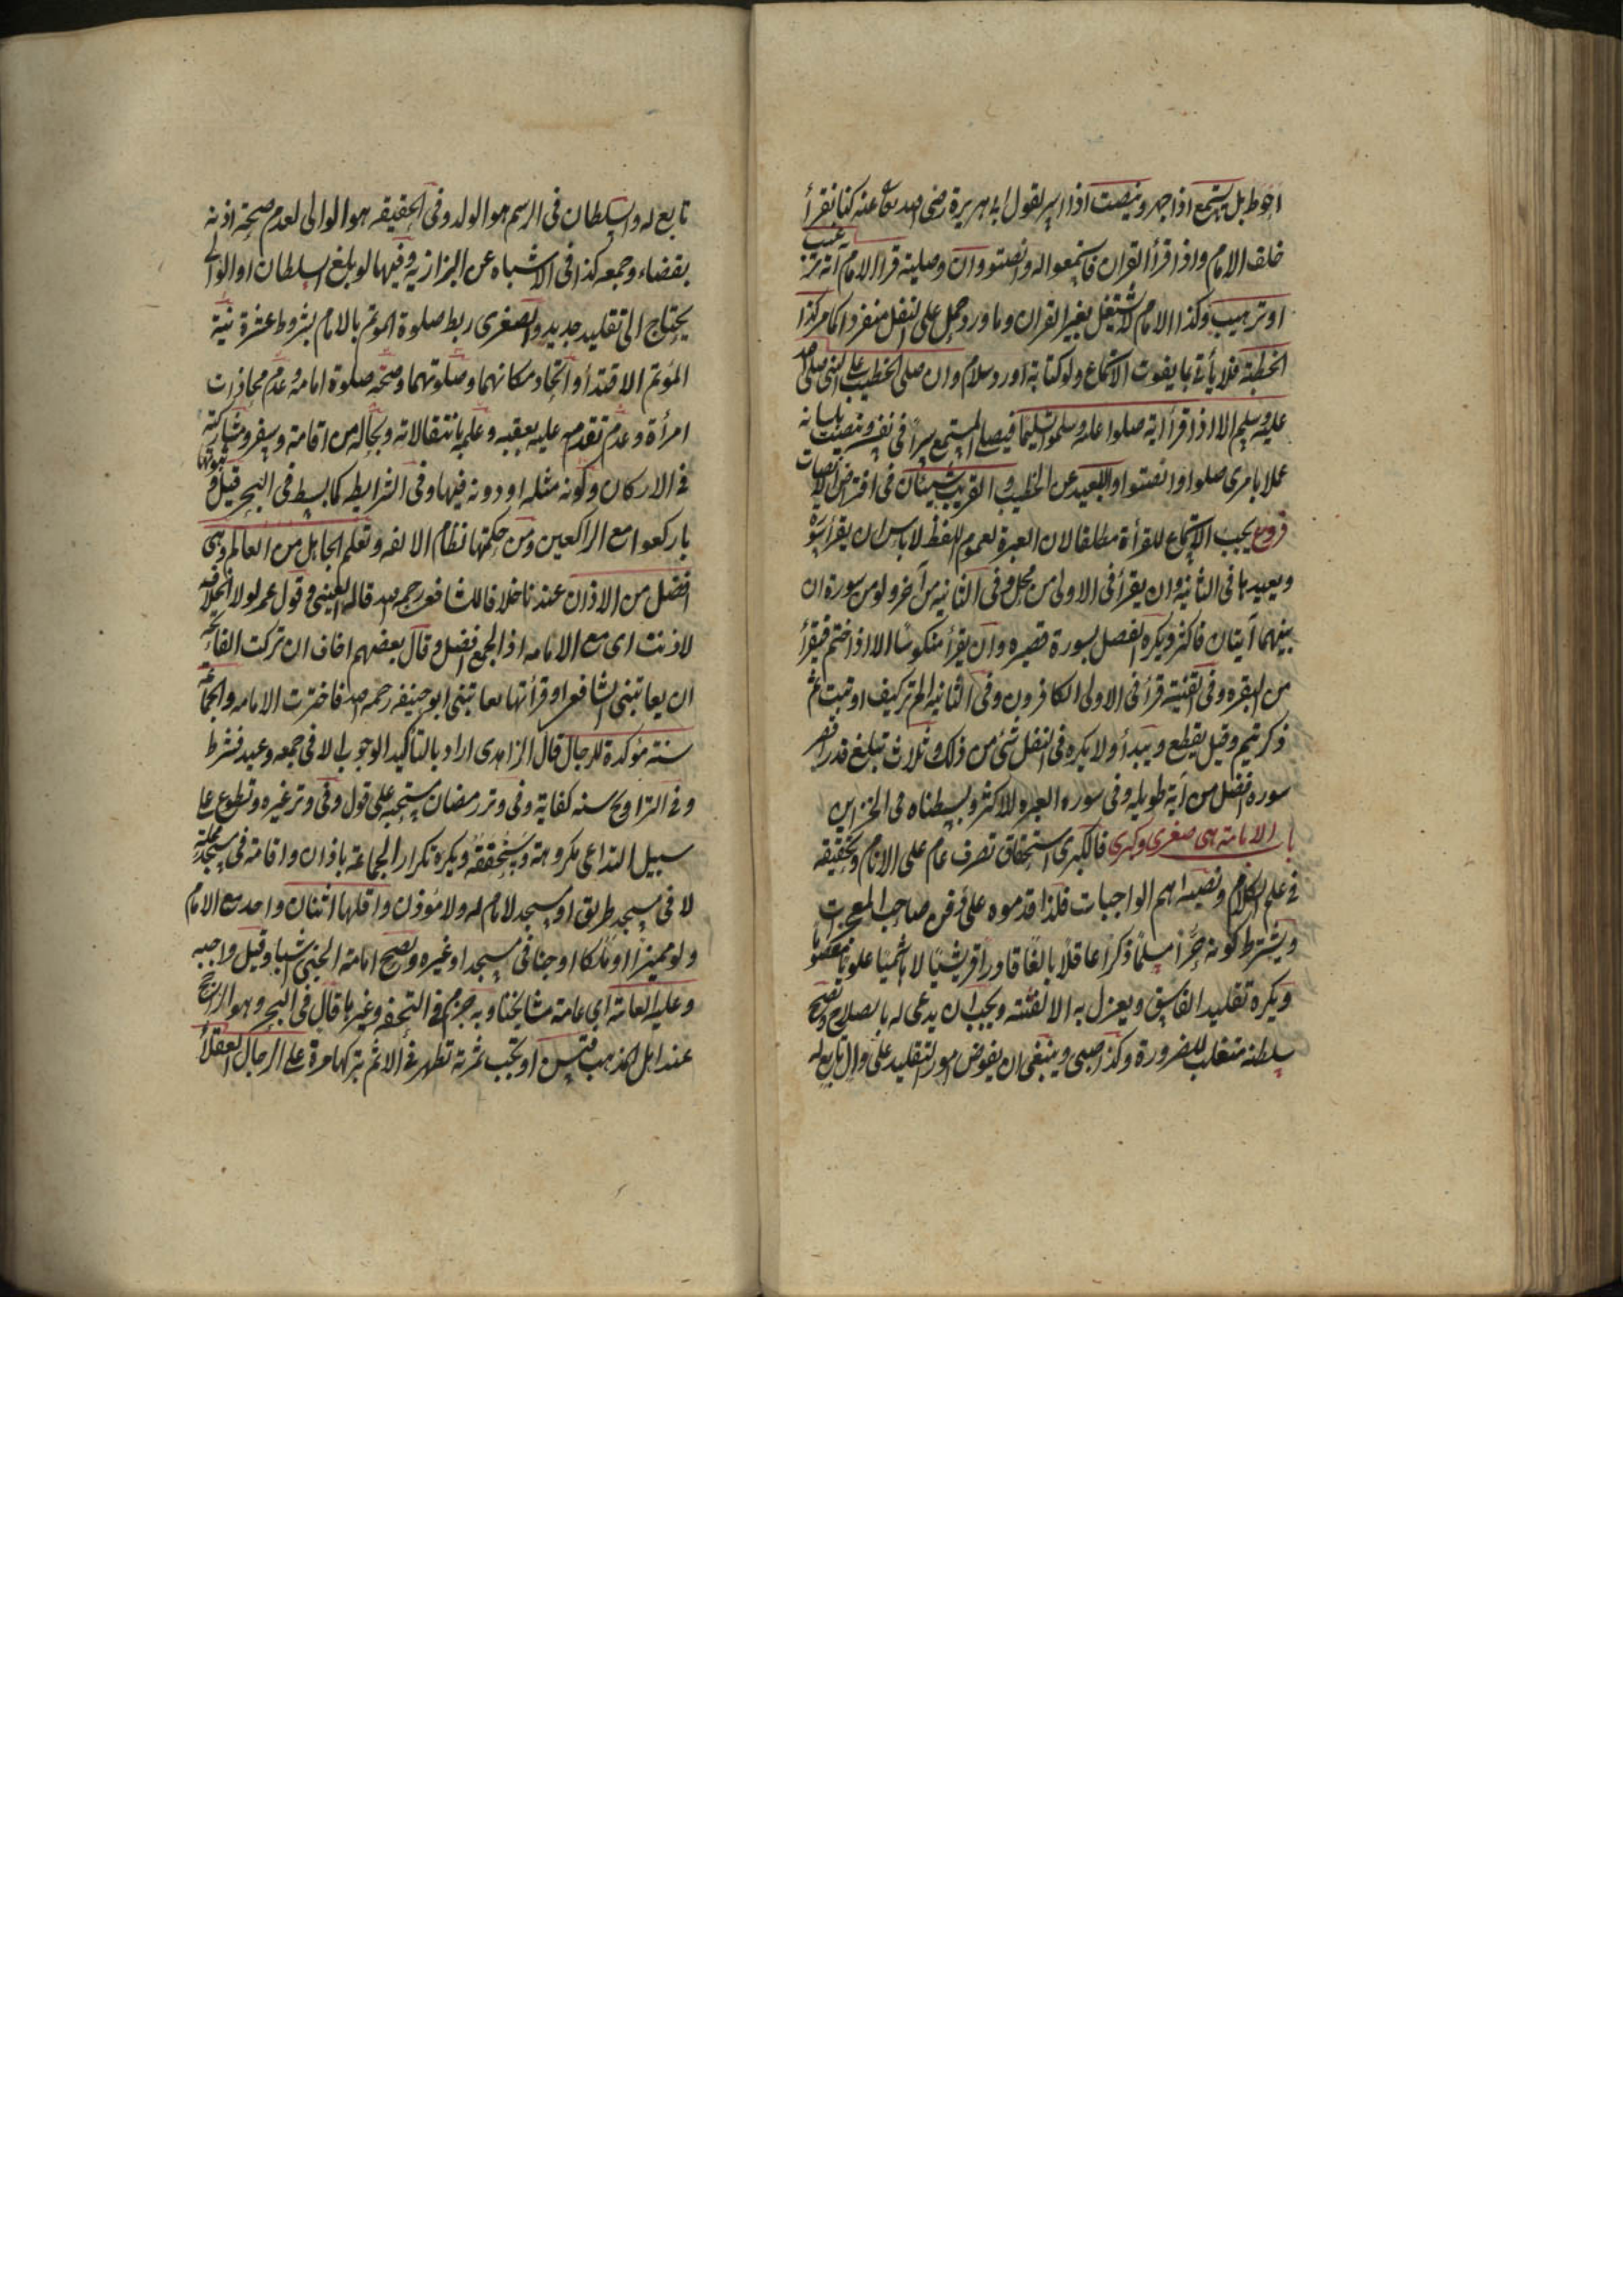 احوط بل يستمع اذا جهر وينصت اذا اسر لقول ابى هريرة رضى الله تعالى عنه كنا نقرأ
خلف الامام واذا قرأ القران فاستمعوا له وانصتوا وان وصلية قرأ الامام اية ترغيب
او ترهيب وكذا الامام لا يشتغل بغير القران وما ورد حمل على النفل منفردا كما مر كذا
الخطبة فلا يأتى بما يفوت الاستماع ولو كتابة او رد سلام وان صلى الخطيب على النبى صلى الله
عليه وسلم الا اذا قرأ اية صلوا عليه وسلموا تسليما فيصلى المستمع سرا فى نفسه وينصت بلسانه
عملا بامرى صلوا وانصتوا والبعيد عن الخطيب والقريب سيان فى افتراض الانصات
فروع يجب الاستماع للقرأة مطلقا لان العبرة لعموم اللفظ لا باس ان يقرأ سورة
ويعيدها فى الثانية وان يقرأ فى الاولى من محل وفى الثانيه من آخر ولو من سورة ان
بينهما آيتان فاكثر ويكره الفصل بسورة قصيره وان يقرأ منكوسا الا اذا ختم فيقرأ
من البقره وفى القنية قرأ فى الاولى الكافرون وفى الثانيه الم تر كيف او تبت ثم
ذكر يتم وقيل يقطع ويبدأ ولا يكره فى النفل شئ من ذلك وثلاث تبلغ قدر اقصر
سورة افضل من آية طويله وفى سوره العبره للاكثر وبسطناه فى الخزاين
باب الامامة هى صغرى وكبرى فالكبرى استحقاق تصرف عام على الانام وتحقيقه
فى علم الكلام ونصبه اهم الواجبات فلذا قدموه على دفن صاحب المعجزات
ويشترط كونه حرا مسلما ذكرا عاقلا بالغا قادرا قريشيا لا هاشميا علويا معصوما
ويكره تقليد الفاسق ويعزل به الا لفتنه ويجب ان يدعى له بالصلاح وتصح
سلطنة متغلب للضرورة وكذا صبى وينبغى ان يفوض امور التقليد على وال تابع له
تابع له والسلطان فى الرسم هو الولد وفى الحقيقه هو الوالى لعدم صحة اذنه
بقضاء وجمعه كذا فى الاشباه عن البزازيه وفيها لو بلغ السلطان او الوالى
يحتاج الى تقليد جديد والصغرى ربط صلوة الموتم بالامام بشروط عشرة نية
المؤتم الاقتدأ واتحاد مكانهما وصلوتهما وصحة صلوة امامه وعدم محاذات
امرأة وعدم تقدمه عليه بعقبه وعلمه بانتقالاته وبحاله من اقامة وسفر ومشاركته
فى الاركان وكونه مثله او دونه فيها وفى الشرايط كما بسط فى البحر قيل وثبوتها
باركعوا مع الراكعين ومن حكمتها نظام الالفه وتعلم الجاهل من العالم وهى
افضل من الاذان عندنا خلافا للشافعى رحمه الله قاله العينى وقول عمر لولا الخلافه
لاذنت اى مع الامامه اذ الجمع افضل وقال بعضهم اخاف ان تركت الفاتحة
ان يعاتبنى الشافعى او قرأتها يعاتبنى ابو حنيفه رحمه الله فاخترت الامامه والجماعة
سنة مؤكدة للرجال قال الزاهدى ارادو بالتأكيد الوجوب الا فى جمعه وعيد فشرط
وفى التراويح سنه كفاية وفى وتر رمضان مستحبه على قول وفى وتر غيره وتطوع على
سبيل التداعى مكروهة وسنحققه ويكره تكرار الجماعة باذان واقامة فى مسجد محلة
لا فى مسجد طريق او مسجد لا امام له ولا مؤذن واقلها اثنان واحد مع الامام
ولو مميزا او ملكا او جنا فى مسجد او غيره وتصح امامة الجنى اشباه وقيل واجبه
وعليه العامة اى عامة مشايخنا وبه جزم فى التحفه وغيرها قال فى البحر وهو الراجح
عند اهل المذهب فتسن او تجب ثمرته تظهر فى الاثم بتركها مرة على الرجال العقلأ